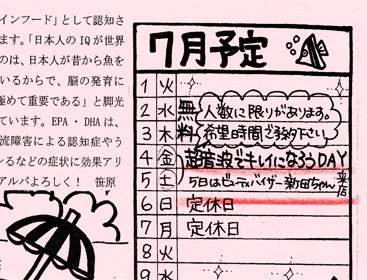 インフード」として認知さ
ます。「日本人のIQが世界
のは、日本人が昔から魚を
いるからで、脳の発育に
極めて重要である」と脚光
ています。EPA・DHAは、
流障害による認知症やう
いるなどの症状に効果アリ
アルパよろしく！ 笹原
7月予定
1 火
2 水 無料 人数に限りがあります。
3 木 希望時間ご予約下さい
4 金 超音波でキレイになろうDAY
5 土 5日はビューティバイザー新田ちゃん来店
6 日 定休日
7 月 定休日
8 火
9 水